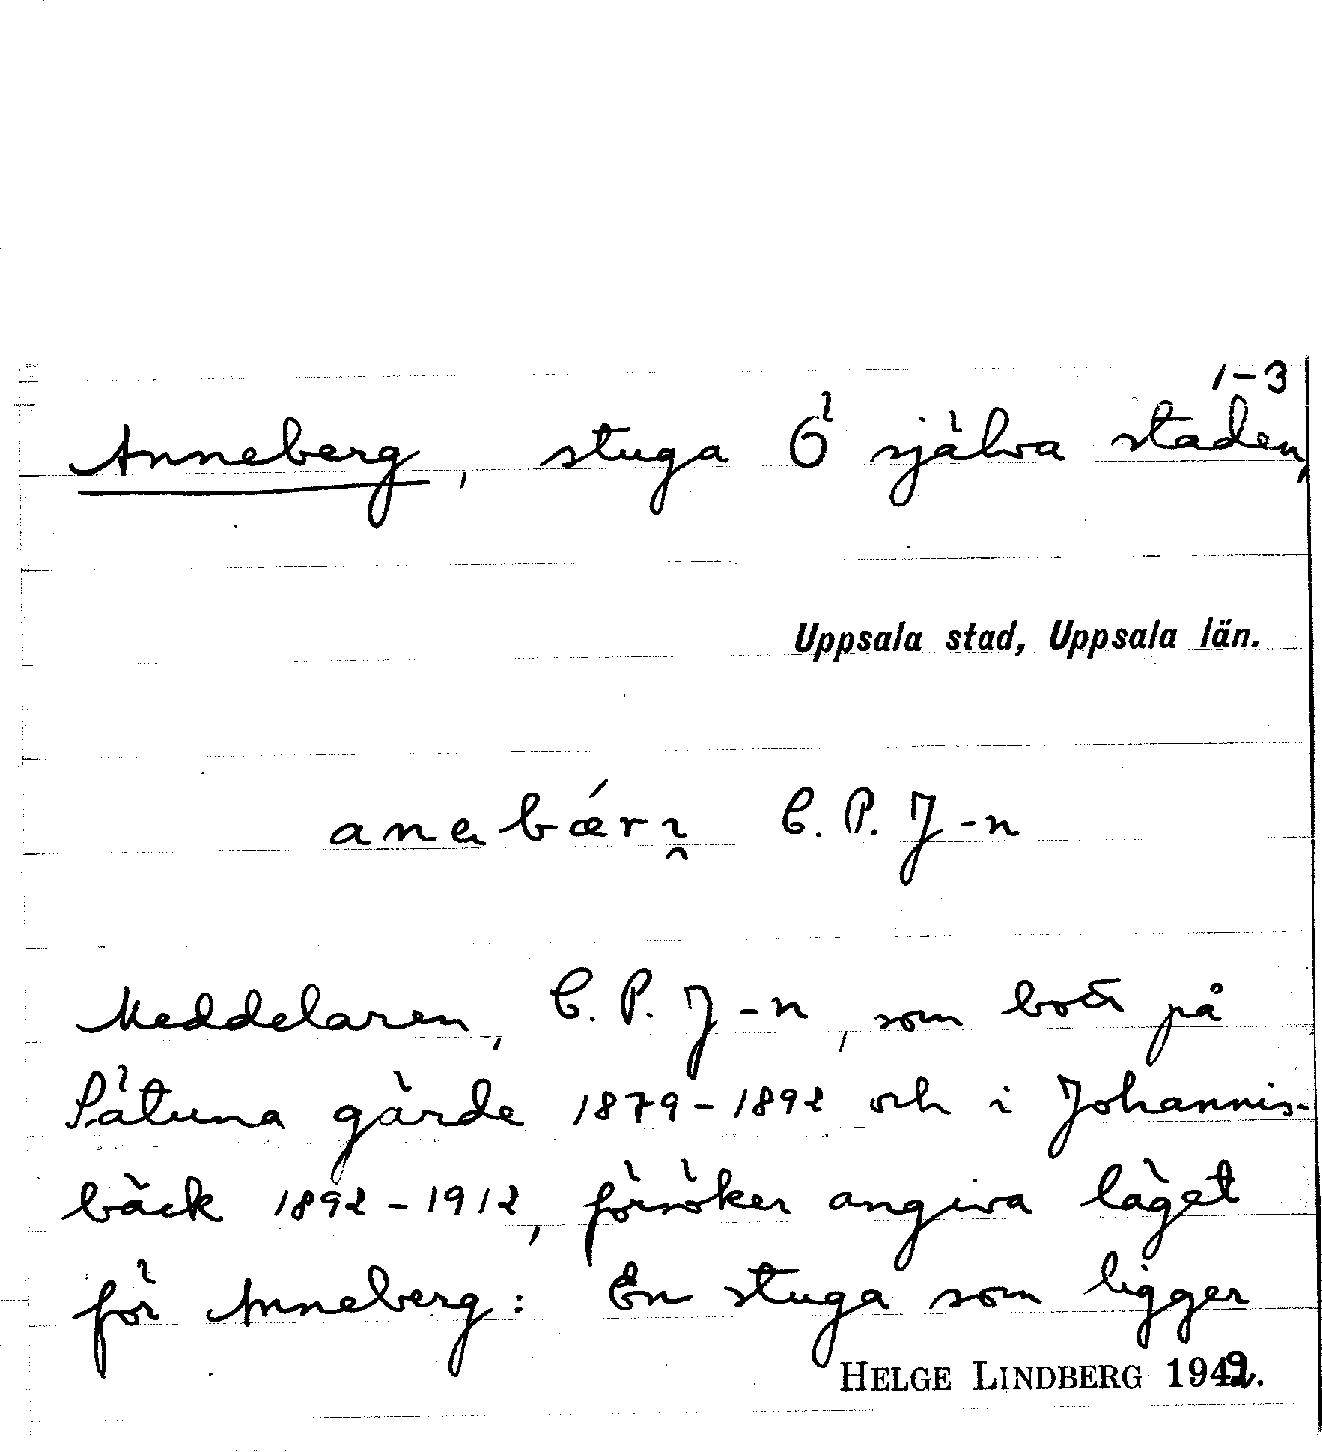 1-3
Anneberg, stuga Ö själva staden,
Uppsala stad, Uppsala län.
C. P. J-n
Meddelaren, C. P. J-n, som bott på
Påtuna gärde 1879-1892 och i Johannis-
bäck 1892-1912, försöker angiva läget
för Anneberg: En stuga som ligger
HELGE LINDBERG 1942.